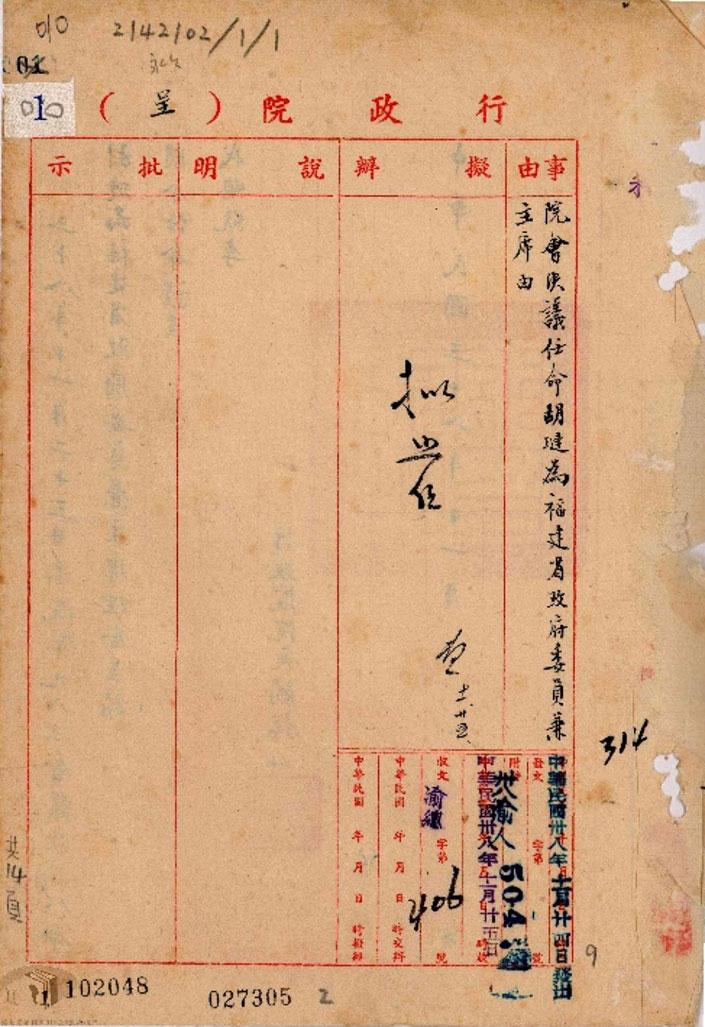 2142102/1/1
01
1
行政院（呈）
事由
擬辦
說明
批示
院會決議任命胡璉為福建省政府委員兼
主席由
拟照任
十一 廿五
314
中華民國卅八年十一月廿四日發出
卅八渝人
504
發文 字第 號
附
中華民國卅八年十一月廿五日
收文 渝總 字第 406 號
中華民國 年 月 日 時交辦
中華民國 年 月 日 時擬辦
共14頁
9
102048
027305
2